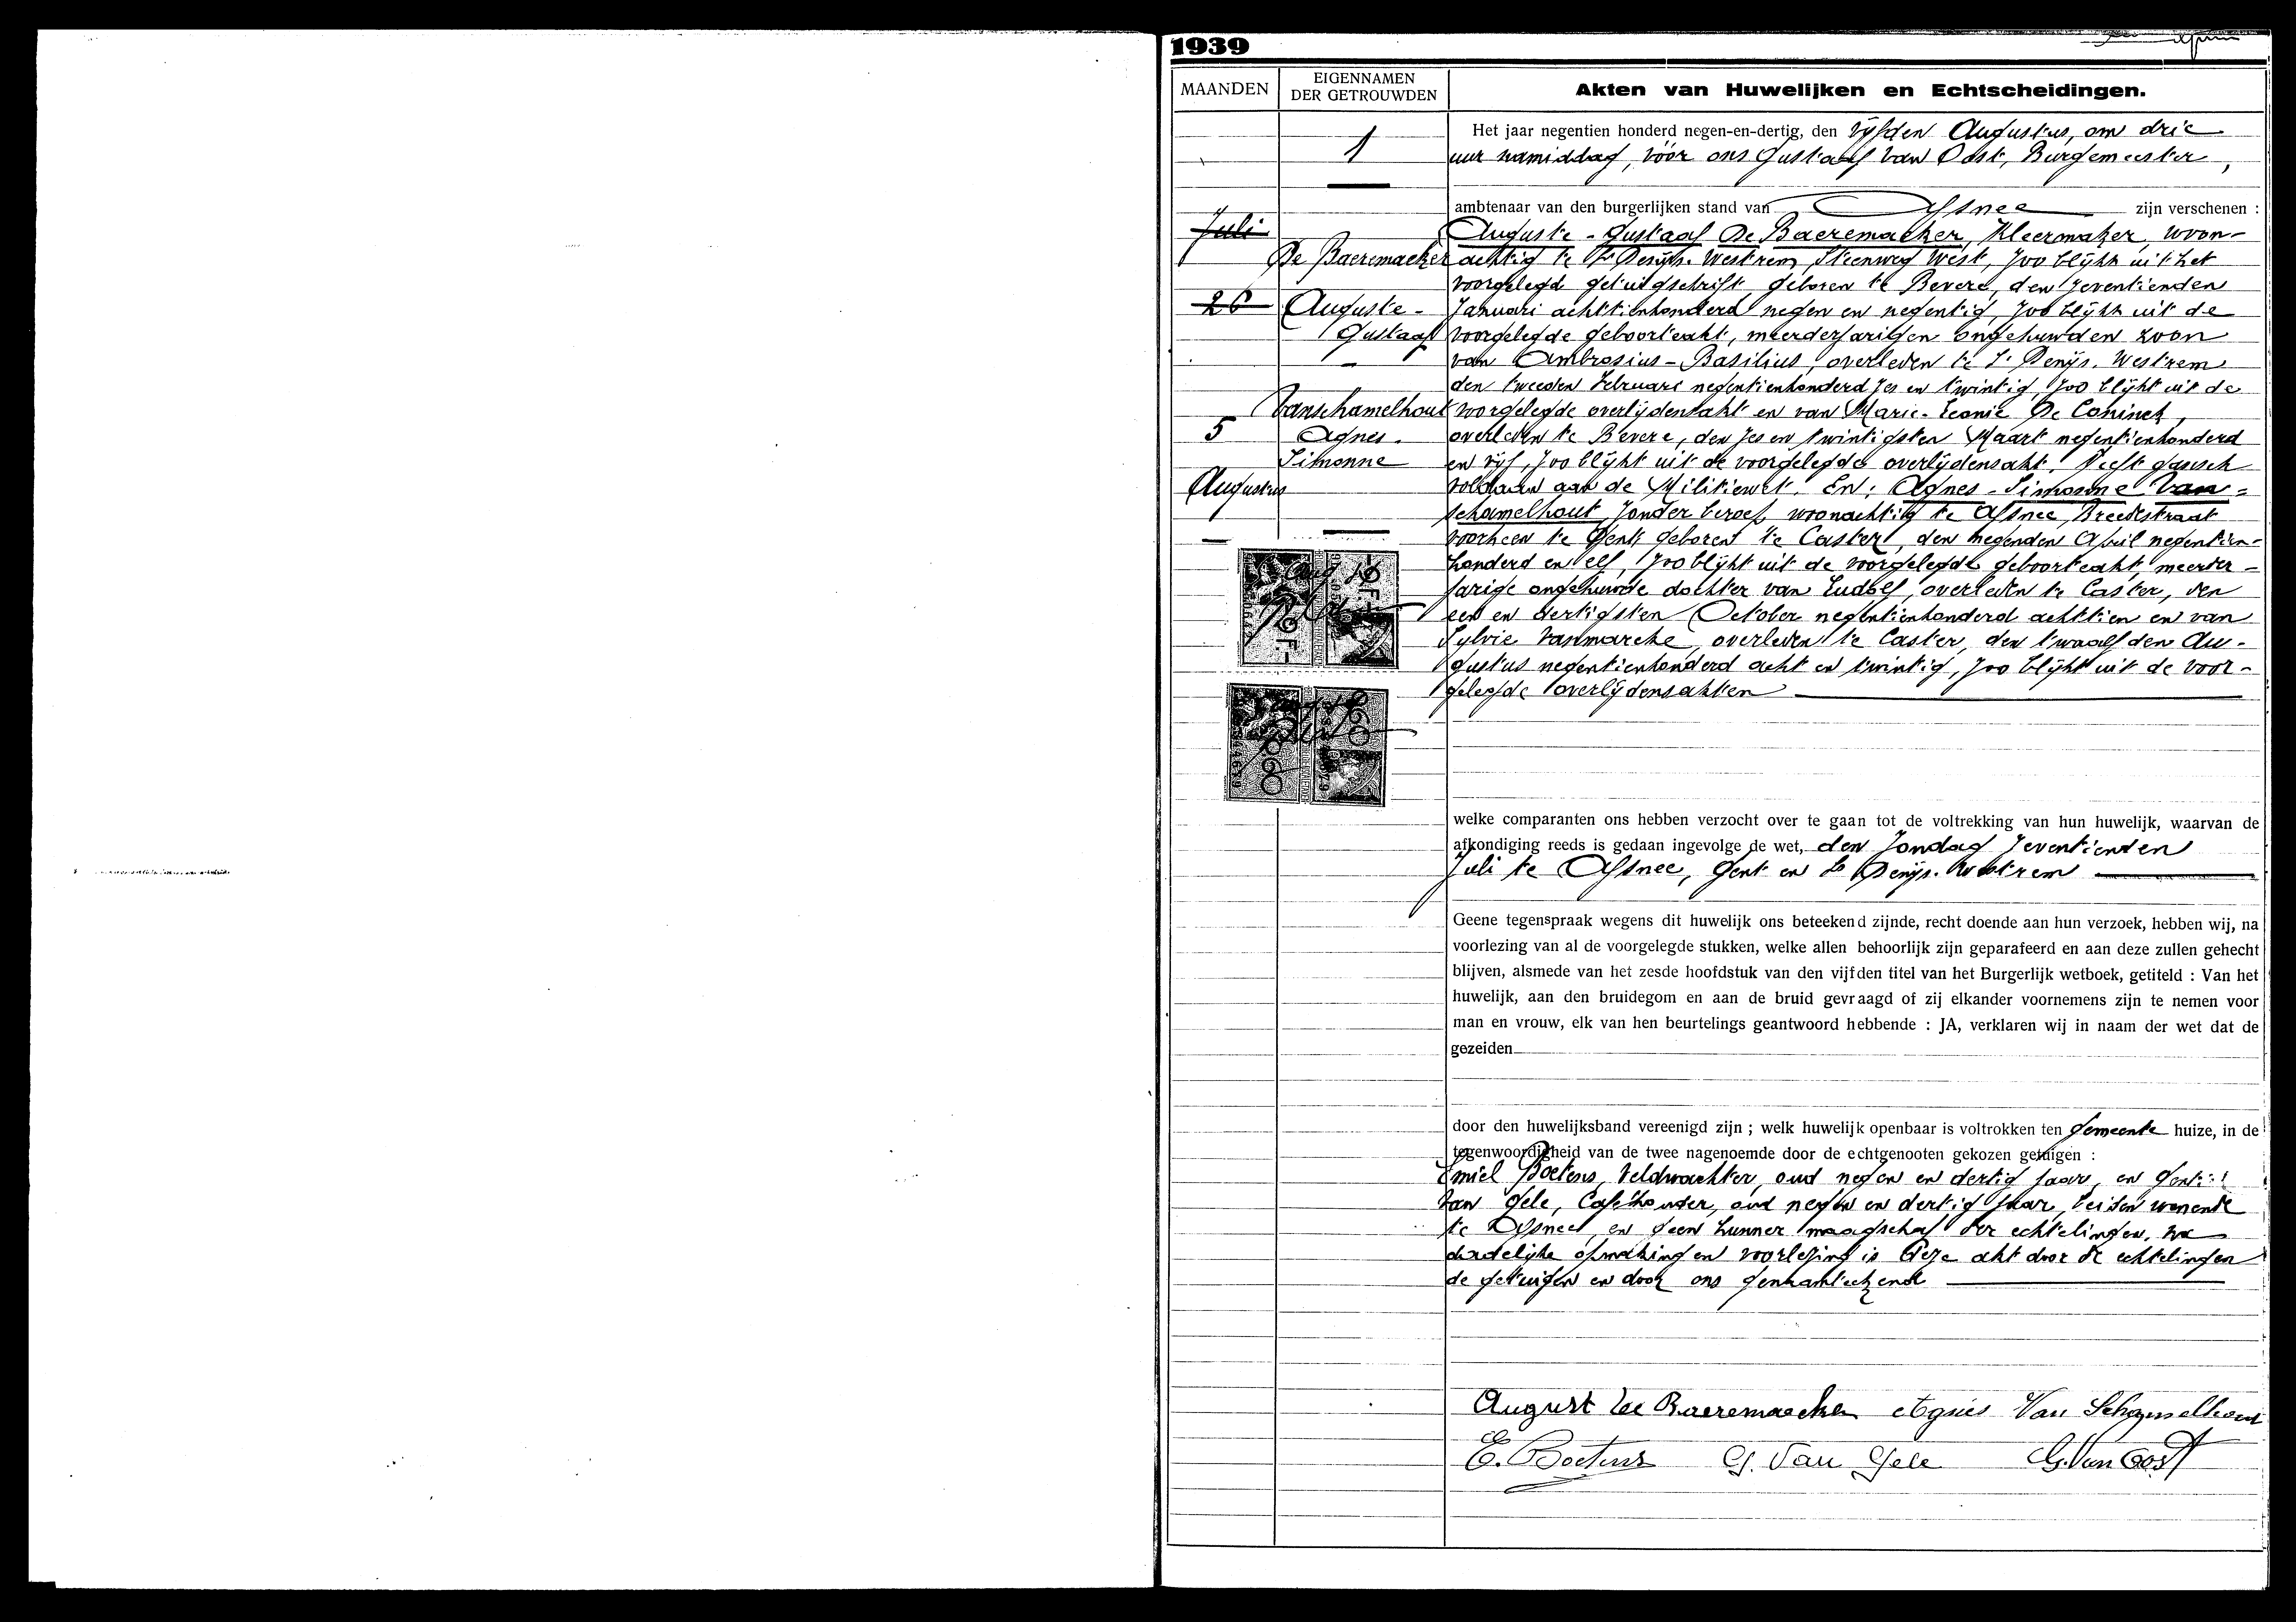 1939
MAANDEN
EIGENNAMEN
DER GETROUWDEN
Akten van Huwelijken en Echtscheidingen.
1
Juli
26
5
Augustus
De Baeremaeker
Auguste -
Gustaaf
Vanschamelhout
Agnes -
Simonne
Het jaar negentien honderd negen-en-dertig, den vijfden Augustus, om drie
uur namiddag, vóór ons Gustaaf Van Oost, Burgemeester,
ambtenaar van den burgerlijken stand van Afsnee zijn verschenen :
Auguste - Gustaaf De Baeremaeker, Kleermaker, woon-
achtig te St Denijs. Westrem, Steenweg West, zoo blijkt uit het
voorgelegd getuigschrift, geboren te Bevere, den zeventienden
Januari achttienhonderd negen en negentig, zoo blijkt uit de
voorgelegde geboorteakt, meerderjarigen ongehuwden zoon
van Ambrosius - Basilius, overleden te St Denijs. Westrem
den tweeden Februari negentienhonderd zes en twintig, zoo blijkt uit de
voorgelegde overlijdensakt en van Marie-Leonie De Coninck,
overleden te Bevere, den zes en twintigsten Maart negentienhonderd
en vijf, zoo blijkt uit de voorgelegde overlijdensakt. Heeft gansch
voldaan aan de Militiewet. En: Agnes - Simonne Van =
schamelhout, zonder beroep, woonachtig te Afsnee, Breedestraat
voorheen te Gent, geboren te Caster, den negenden April negentien-
honderd en elf, zoo blijkt uit de voorgelegde geboorteakt, meerder -
jarige ongehuwde dochter van Ludolf, overleden te Caster, den
een en dertigsten October negentienhonderd achttien en van
Sylvie Vanmarcke, overleden te Caster, den twaalfden Au-
gustus negentienhonderd acht en twintig, zoo blijkt uit de voor-
gelegde overlijdensakten
welke comparanten ons hebben verzocht over te gaan tot de voltrekking van hun huwelijk, waarvan de
afkondiging reeds is gedaan ingevolge de wet, den Zondag zeventienden
Juli te Afsnee, Gent en St Denijs. Westrem
Geene tegenspraak wegens dit huwelijk ons beteekend zijnde, recht doende aan hun verzoek, hebben wij, na
voorlezing van al de voorgelegde stukken, welke allen behoorlijk zijn geparafeerd en aan deze zullen gehecht
blijven, alsmede van het zesde hoofdstuk van den vijfden titel van het Burgerlijk wetboek, getiteld : Van het
huwelijk, aan den bruidegom en aan de bruid gevraagd of zij elkander voornemens zijn te nemen voor
man en vrouw, elk van hen beurtelings geantwoord hebbende : JA, verklaren wij in naam der wet dat de
gezeiden
door den huwelijksband vereenigd zijn ; welk huwelijk openbaar is voltrokken ten Gemeente huize, in de
tegenwoordigheid van de twee nagenoemde door de echtgenooten gekozen getuigen :
Emiel Boetens, Veldwachter, oud negen en dertig jaar, en
Van Gele, Caféhouder, oud negen en dertig jaar, beiden wonende
te Afsnee, en geen hunner maagschap der echtelingen. Na
dadelijke opmaking en voorlezing is deze akt door de echtelingen
de getuigen en door ons
August De Baeremaeker Agnes Van Schamelhout
E. Boetens G. Van Gele G. Van Oost